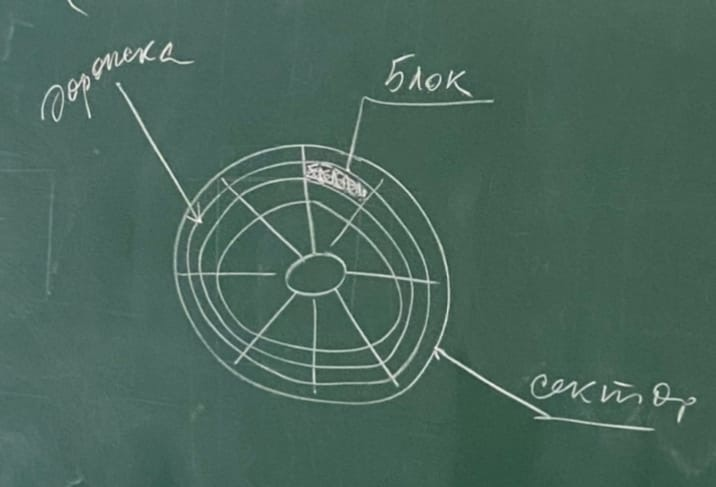 дорожка
Блок
сектор